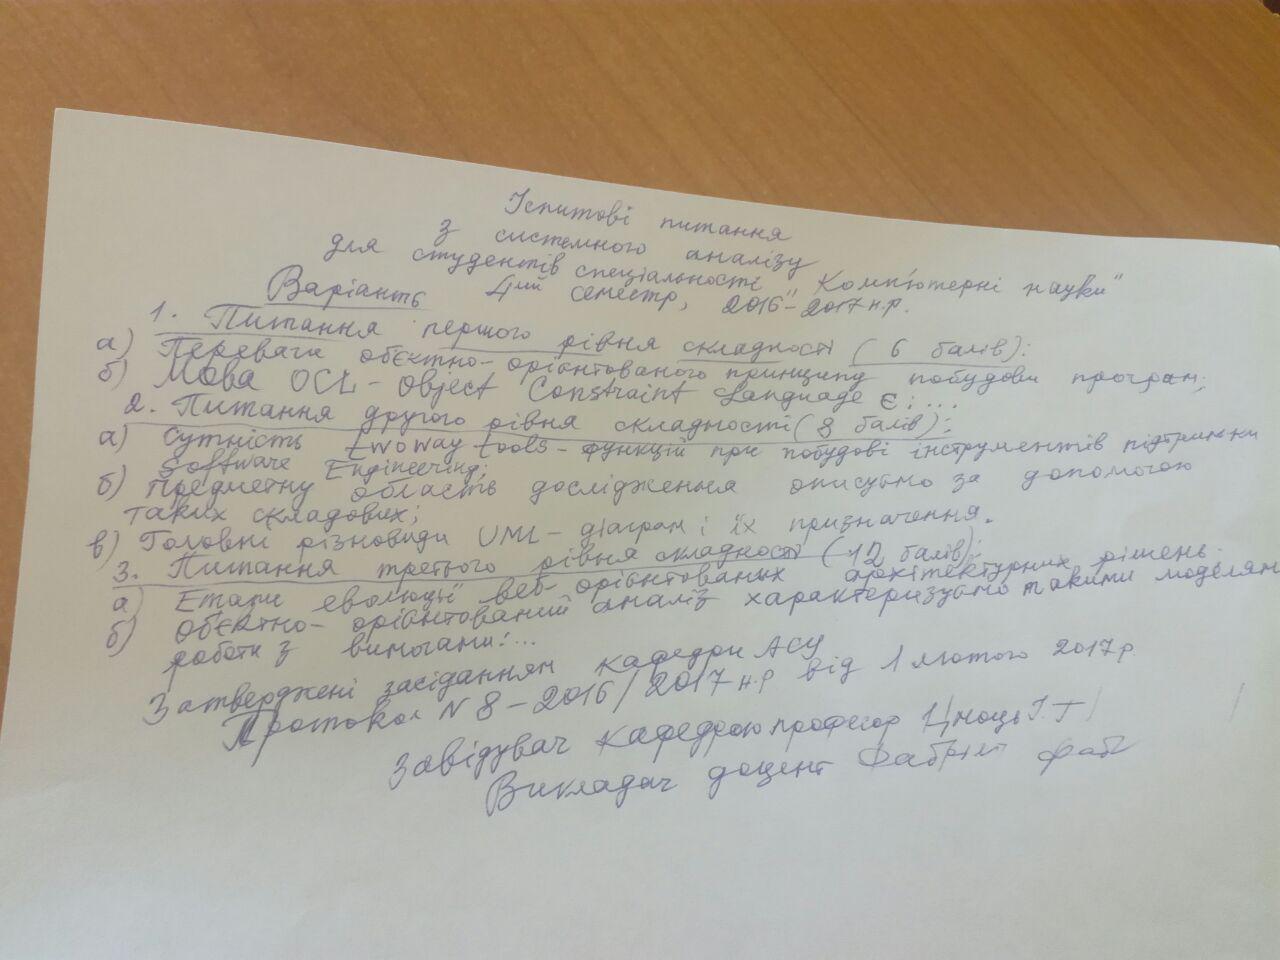 Іспитові питання
з системного аналізу
для студентів спеціальності "Комп'ютерні науки"
Варіант 6 4ий семестр, 2016-2017 н.р.
1. Питання першого рівня складності (6 балів):
а) Переваги обєктно-орієнтованого принципу побудови програм;
б) Мова OCL - Object Constraint Language є:...
2. Питання другого рівня складності (8 балів);
а) Сутність twoway tools - функцій при побудові інструментів підтримки
Software Engineering;
б) Предметну область дослідження описуємо за допомогою
таких складових;
в) Головні різновиди UML - діаграм і їх призначення.
3. Питання третього рівня складності (12 балів);
а) Етапи еволюції веб-орієнтованих архітектурних рішень.
б) Обєктно-орієнтований аналіз характеризуємо такими моделями
роботи з вимогами:...
Затверджені засіданням кафедри АСУ
Протокол N 8 - 2016/2017 н.р від 1 лютого 2017р
Завідувач кафедрою професор І.Г
Викладач доцент